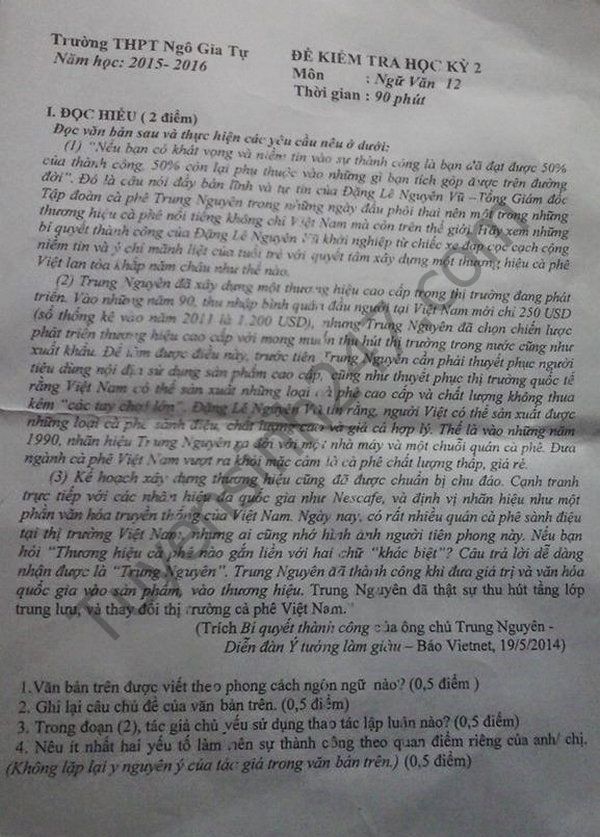 Trường THPT Ngô Gia Tự
Năm học: 2015- 2016
ĐỀ KIỂM TRA HỌC KỲ 2
Môn : Ngữ Văn 12
Thời gian : 90 phút
I. ĐỌC HIỂU ( 2 điểm)
Đọc văn bản sau và thực hiện các yêu cầu nêu ở dưới:
(1) "Nếu bạn có khát vọng và niềm tin vào sự thành công là bạn đã đạt được 50%
của thành công, 50% còn lại phụ thuộc vào những gì bạn tích góp được trên đường
đời". Đó là câu nói đầy bản lĩnh và tự tin của Đặng Lê Nguyên Vũ –Tổng Giám đốc
Tập đoàn cà phê Trung Nguyên trong những ngày đầu phôi thai nên một trong những
thương hiệu cà phê nổi tiếng không chỉ Việt Nam mà còn trên thế giới. Hãy xem những
bí quyết thành công của Đặng Lê Nguyên Vũ khởi nghiệp từ chiếc xe đạp cọc cạch cộng
niềm tin và ý chí mãnh liệt của tuổi trẻ với quyết tâm xây dựng một thương hiệu cà phê
Việt lan tỏa khắp năm châu như thế nào.
(2) Trung Nguyên đã xây dựng một thương hiệu cao cấp trong thị trường đang phát
triển. Vào những năm 90, thu nhập bình quân đầu người tại Việt Nam mới chỉ 250 USD
(số thống kê vào năm 2011 là 1.200 USD), nhưng Trung Nguyên đã chọn chiến lược
phát triển thương hiệu cao cấp với mong muốn thu hút thị trường trong nước cũng như
xuất khẩu. Để làm được điều này, trước tiên Trung Nguyên cần phải thuyết phục người
tiêu dùng nội địa sử dụng sản phẩm cao cấp, cũng như thuyết phục thị trường quốc tế
rằng Việt Nam có thể sản xuất những loại cà phê cao cấp và chất lượng không thua
kém "các tay chơi lớn". Đặng Lê Nguyên Vũ thì rằng, người Việt có thể sản xuất được
những loại cà phê sành điệu, chất lượng cao và giá cả hợp lý. Thế là vào những năm
1990, nhãn hiệu Trung Nguyên ra đời với một nhà máy và một chuỗi quán cà phê. Đưa
ngành cà phê Việt Nam vượt ra khỏi mặc cảm là cà phê chất lượng thấp, giá rẻ.
(3) Kế hoạch xây dựng thương hiệu cũng đã được chuẩn bị chu đáo. Cạnh tranh
trực tiếp với các nhãn hiệu đa quốc gia như Nescafe, và định vị nhãn hiệu như một
phần văn hóa truyền thống của Việt Nam. Ngày nay, có rất nhiều quán cà phê sành điệu
tại thị trường Việt Nam, nhưng ai cũng nhớ hình ảnh người tiên phong này. Nếu bạn
hỏi "Thương hiệu cà phê nào gắn liền với hai chữ "khác biệt"? Câu trả lời dễ dàng
nhận được là "Trung Nguyên". Trung Nguyên đã thành công khi đưa giá trị và văn hóa
quốc gia vào sản phẩm, vào thương hiệu. Trung Nguyên đã thật sự thu hút tầng lớp
trung lưu, và thay đổi thị trường cà phê Việt Nam."
(Trích Bí quyết thành công của ông chủ Trung Nguyên -
Diễn đàn Ý tưởng làm giàu – Báo Vietnet, 19/5/2014)
1.Văn bản trên được viết theo phong cách ngôn ngữ nào? (0,5 điểm )
2. Ghi lại câu chủ đề của văn bản trên. (0,5 điểm)
3. Trong đoạn (2), tác giả chủ yếu sử dụng thao tác lập luận nào? (0,5 điểm)
4. Nêu ít nhất hai yếu tố làm nên sự thành công theo quan điểm riêng của anh/ chị.
(Không lặp lại y nguyên ý của tác giả trong văn bản trên.) (0,5 điểm)